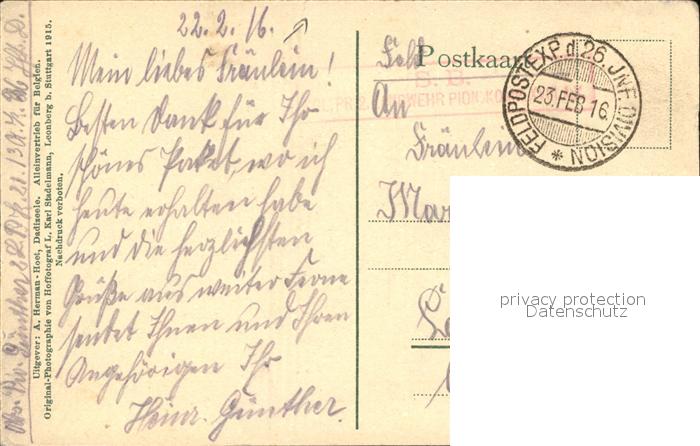 22. 2. 16.
Mein liebes Fräulein!
Besten Dank für Ihr
schönes Paket, wo ich
heute erhalten habe
und die herzlichsten
Grüße aus weiter Ferne
sendet Ihnen und Ihren
Angehörigen Ihr
Heinr. Günther.
Uitgever: A. Herman-Hoet, Dadizeele. Alleinvertrieb für Belgien.
Original-Photographie von Hoffotograf L. Karl Stadelmann, Leonberg b. Stuttgart 1915.
Nachdruck verboten.
Günther
Feld Postkaar
S. B.
WEHR PION. KO
An
Fräulein
Mar
FELDPOSTEXP. d. 26. INF. DIVISION
23. FEB 16.
privacy protection
Datenschutz